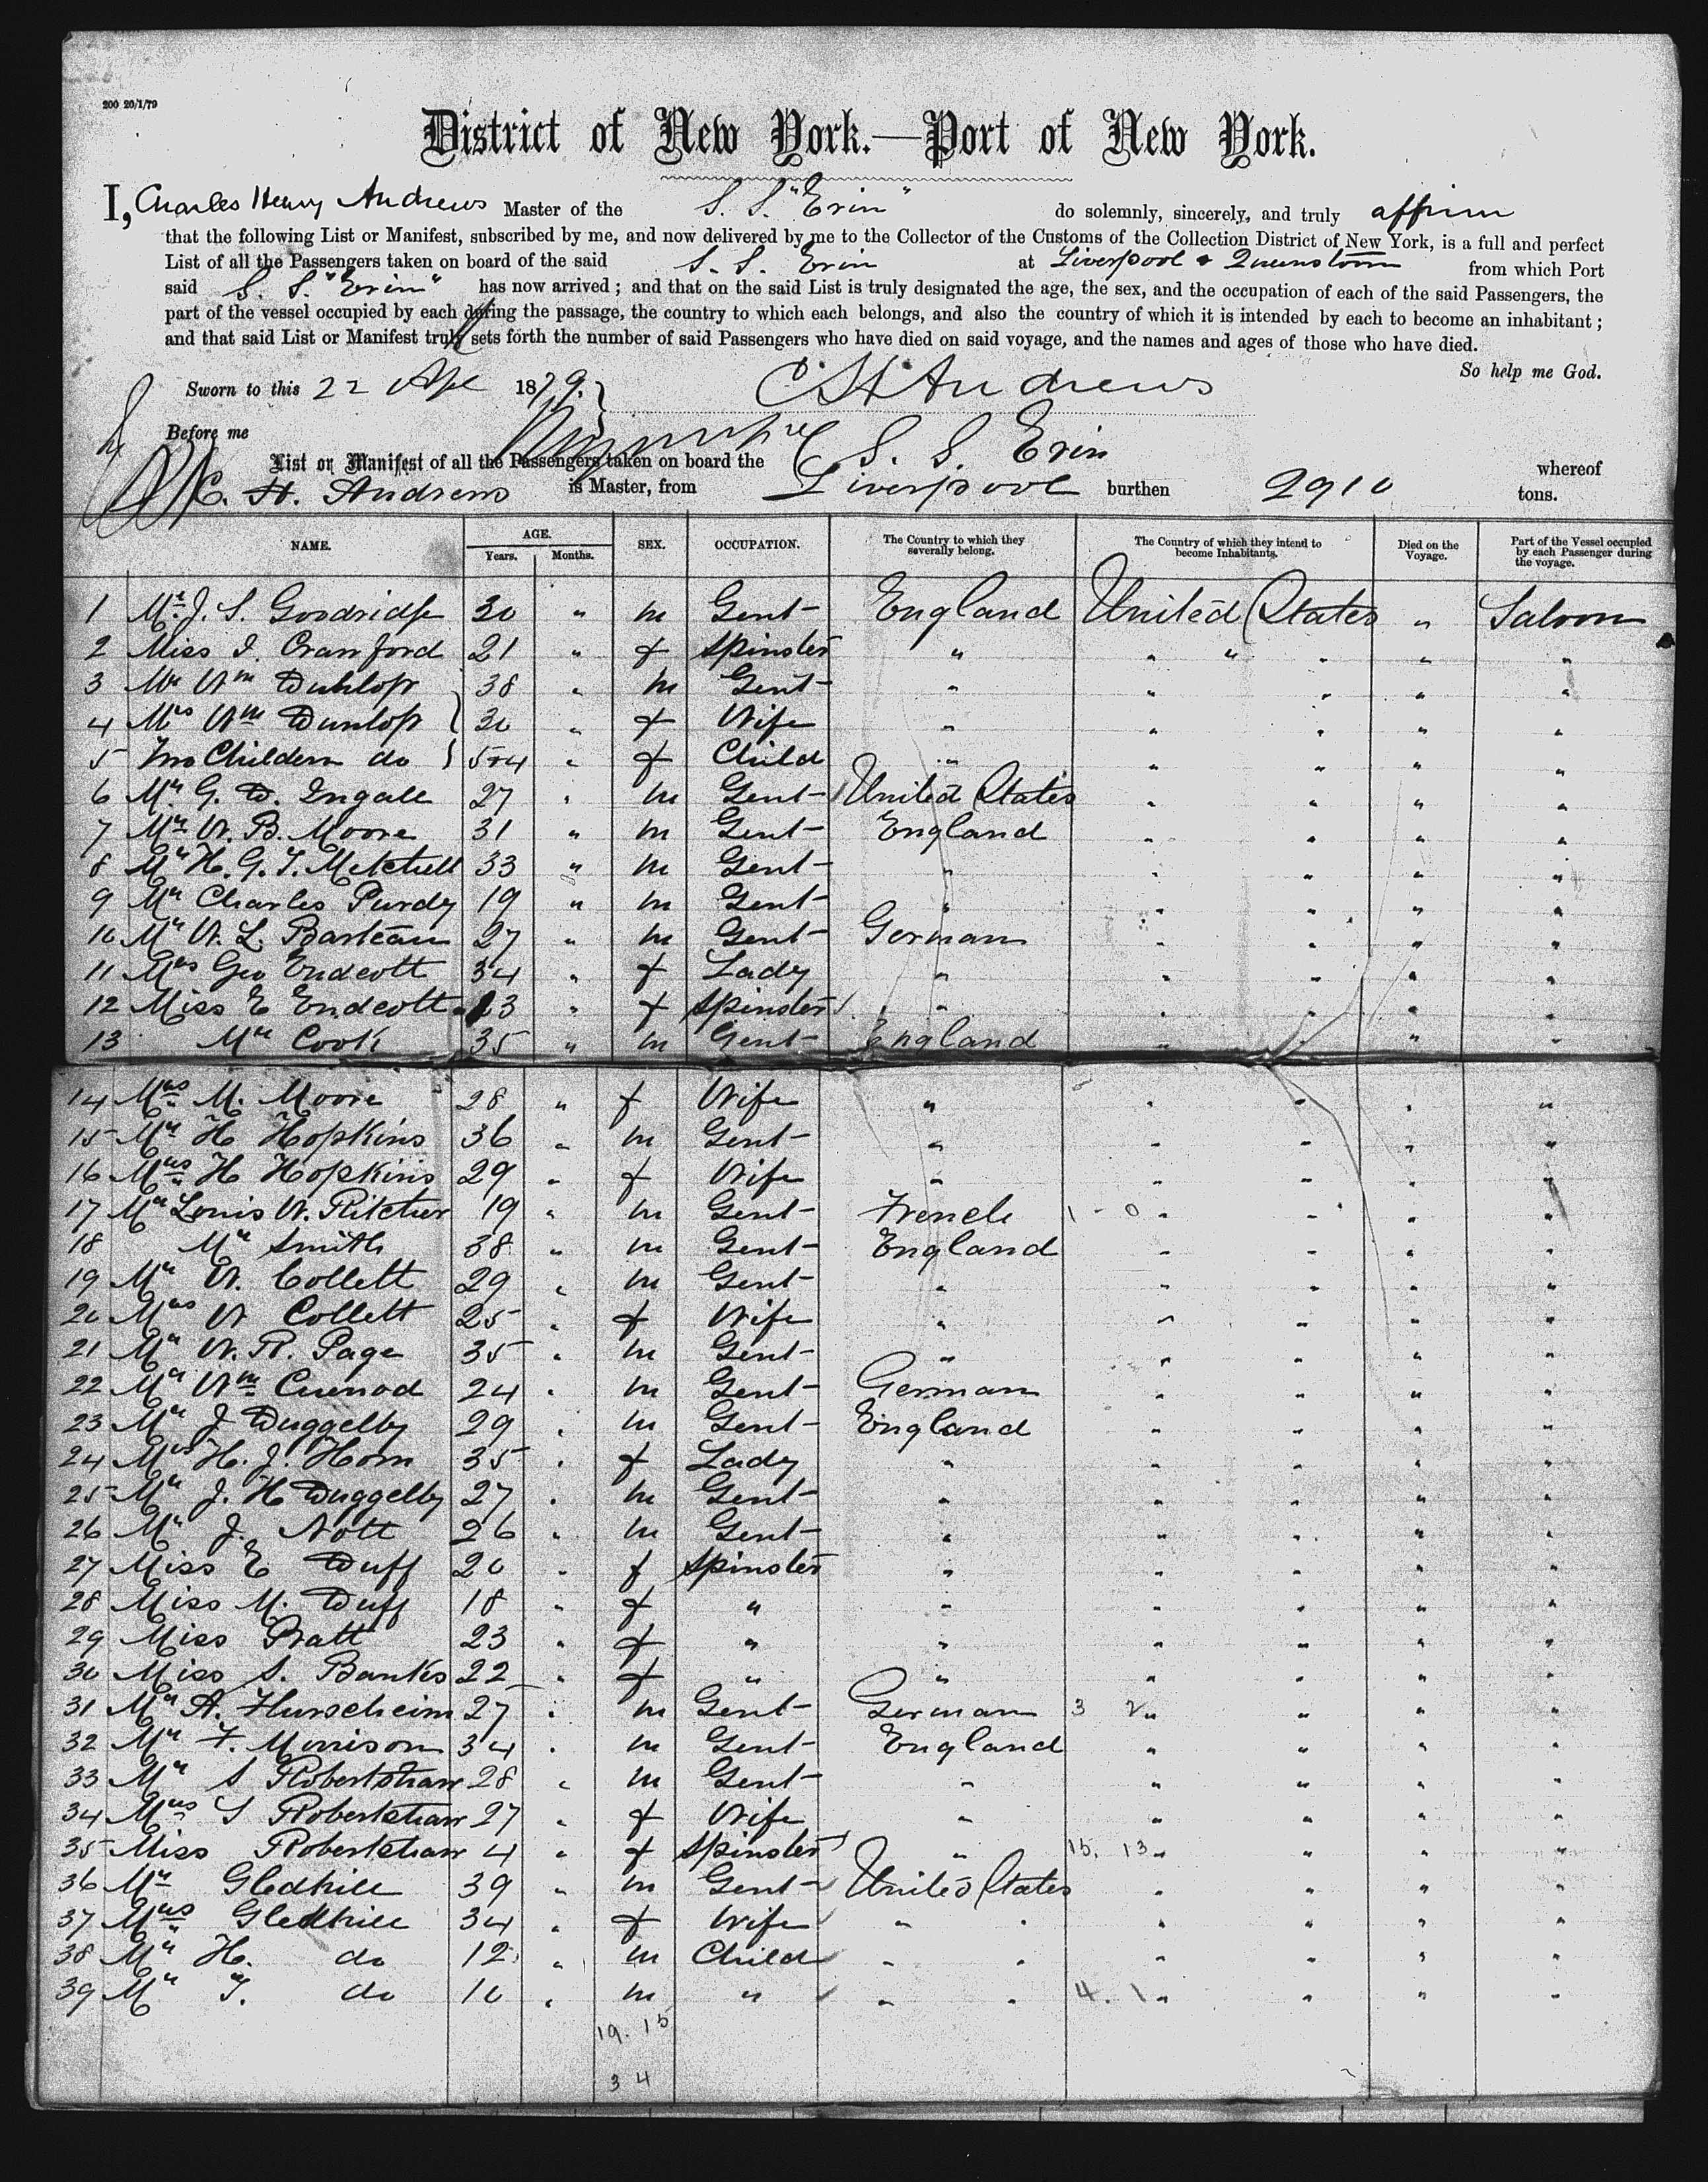 200 20/1/79
District of New York.—Port of New York.
I, Charles Henry Andrews Master of the S. S. "Erin" do solemnly, sincerely, and truly affirm
that the following List or Manifest, subscribed by me, and now delivered by me to the Collector of the Customs of the Collection District of New York, is a full and perfect
List of all the Passengers taken on board of the said S. S. Erin at Liverpool & Queenstown from which Port
said S. S. "Erin" has now arrived; and that on the said List is truly designated the age, the sex, and the occupation of each of the said Passengers, the
part of the vessel occupied by each during the passage, the country to which each belongs, and also the country of which it is intended by each to become an inhabitant;
and that said List or Manifest truly sets forth the number of said Passengers who have died on said voyage, and the names and ages of those who have died.
So help me God.
Sworn to this 22 Apl 1879. C H Andrews
Before me
List or Manifest of all the Passengers taken on board the S. S. Erin whereof
C. H. Andrews is Master, from Liverpool burthen 2910 tons.
NAME. AGE. Years. Months. SEX. OCCUPATION. The Country to which they severally belong. The Country of which they intend to become Inhabitants. Died on the Voyage. Part of the Vessel occupied by each Passenger during the voyage.
1 Mr J. S. Goodridge 30 " m Gent England United States " Saloon
2 Miss I. Crawford 21 " f Spinster " " " " " "
3 Mr Wm Dunlop 38 " m Gent " " " " "
4 Mrs Wm Dunlop 30 " f Wife " " " " "
5 Two Childern do 5+4 " f Child " " " " "
6 Mr G. D. Ingall 27 " m Gent United States " " " "
7 Mr W. B. Moore 31 " m Gent England " " " "
8 Mr H. G. T. Mitchell 33 " m Gent " " " " "
9 Mr Charles Purdy 19 " m Gent " " " " "
10 Mr W. L. Barteau 27 " m Gent German " " " "
11 Mrs Geo Endcott 34 " f Lady " " " " "
12 Miss E Endcott 23 " f Spinster " " " " "
13 Mr Cook 35 " m Gent England " " " "
14 Mrs M. Moore 28 " f Wife " " " " "
15 Mr H Hopkins 36 " m Gent " " " " "
16 Mrs H Hopkins 29 " f Wife " " " " "
17 Mr Louis W. Ritcher 19 " m Gent French 1 - 0 " " " "
18 Mr Smith 38 " m Gent England " " " "
19 Mr W. Collett 29 " m Gent " " " " "
20 Mrs W Collett 25 " f Wife " " " " "
21 Mr W. R. Page 35 " m Gent " " " " "
22 Mr Wm Cuenod 24 " m Gent German " " " "
23 Mr J Duggelby 29 " m Gent England " " " "
24 Mrs H. J. Horn 35 " f Lady " " " " "
25 Mr J. H Duggelby 27 " m Gent " " " " "
26 Mr J. Nott 26 " m Gent " " " " "
27 Miss E Duff 20 " f Spinster " " " " "
28 Miss M. Duff 18 " f " " " " " "
29 Miss Pratt 23 " f " " " " " "
30 Miss S. Banks 22 " f " " " " " "
31 Mr A. Hurscheim 27 " m Gent German 3 2 " " " "
32 Mr F. Morrison 34 " m Gent England " " " "
33 Mr S Robertshaw 28 " m Gent " " " " "
34 Mrs S Robertshaw 27 " f Wife " " " " "
35 Miss Robertshaw 4 " f Spinster " 15. 13 " " " "
36 Mr Gledhill 39 " m Gent United States " " " "
37 Mrs Gledhill 34 " f Wife " " " " " "
38 Mr H. do 12 " m Child " " " " " "
39 Mr T. do 10 " m " " " 4. 1 " " " "
19. 15
3 4